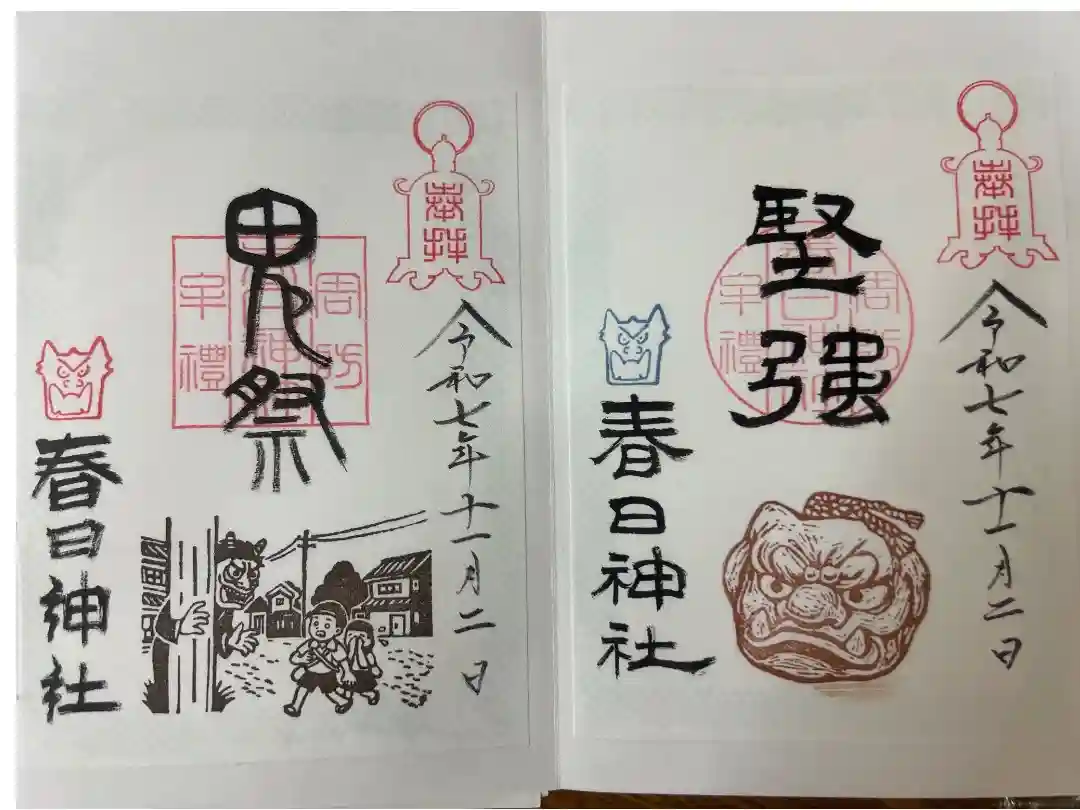 奉拝
令和七年十一月二日
堅強
周防
春日神社
牟禮
春日神社
奉拝
令和七年十一月二日
鬼祭
周防
春日神社
牟禮
春日神社